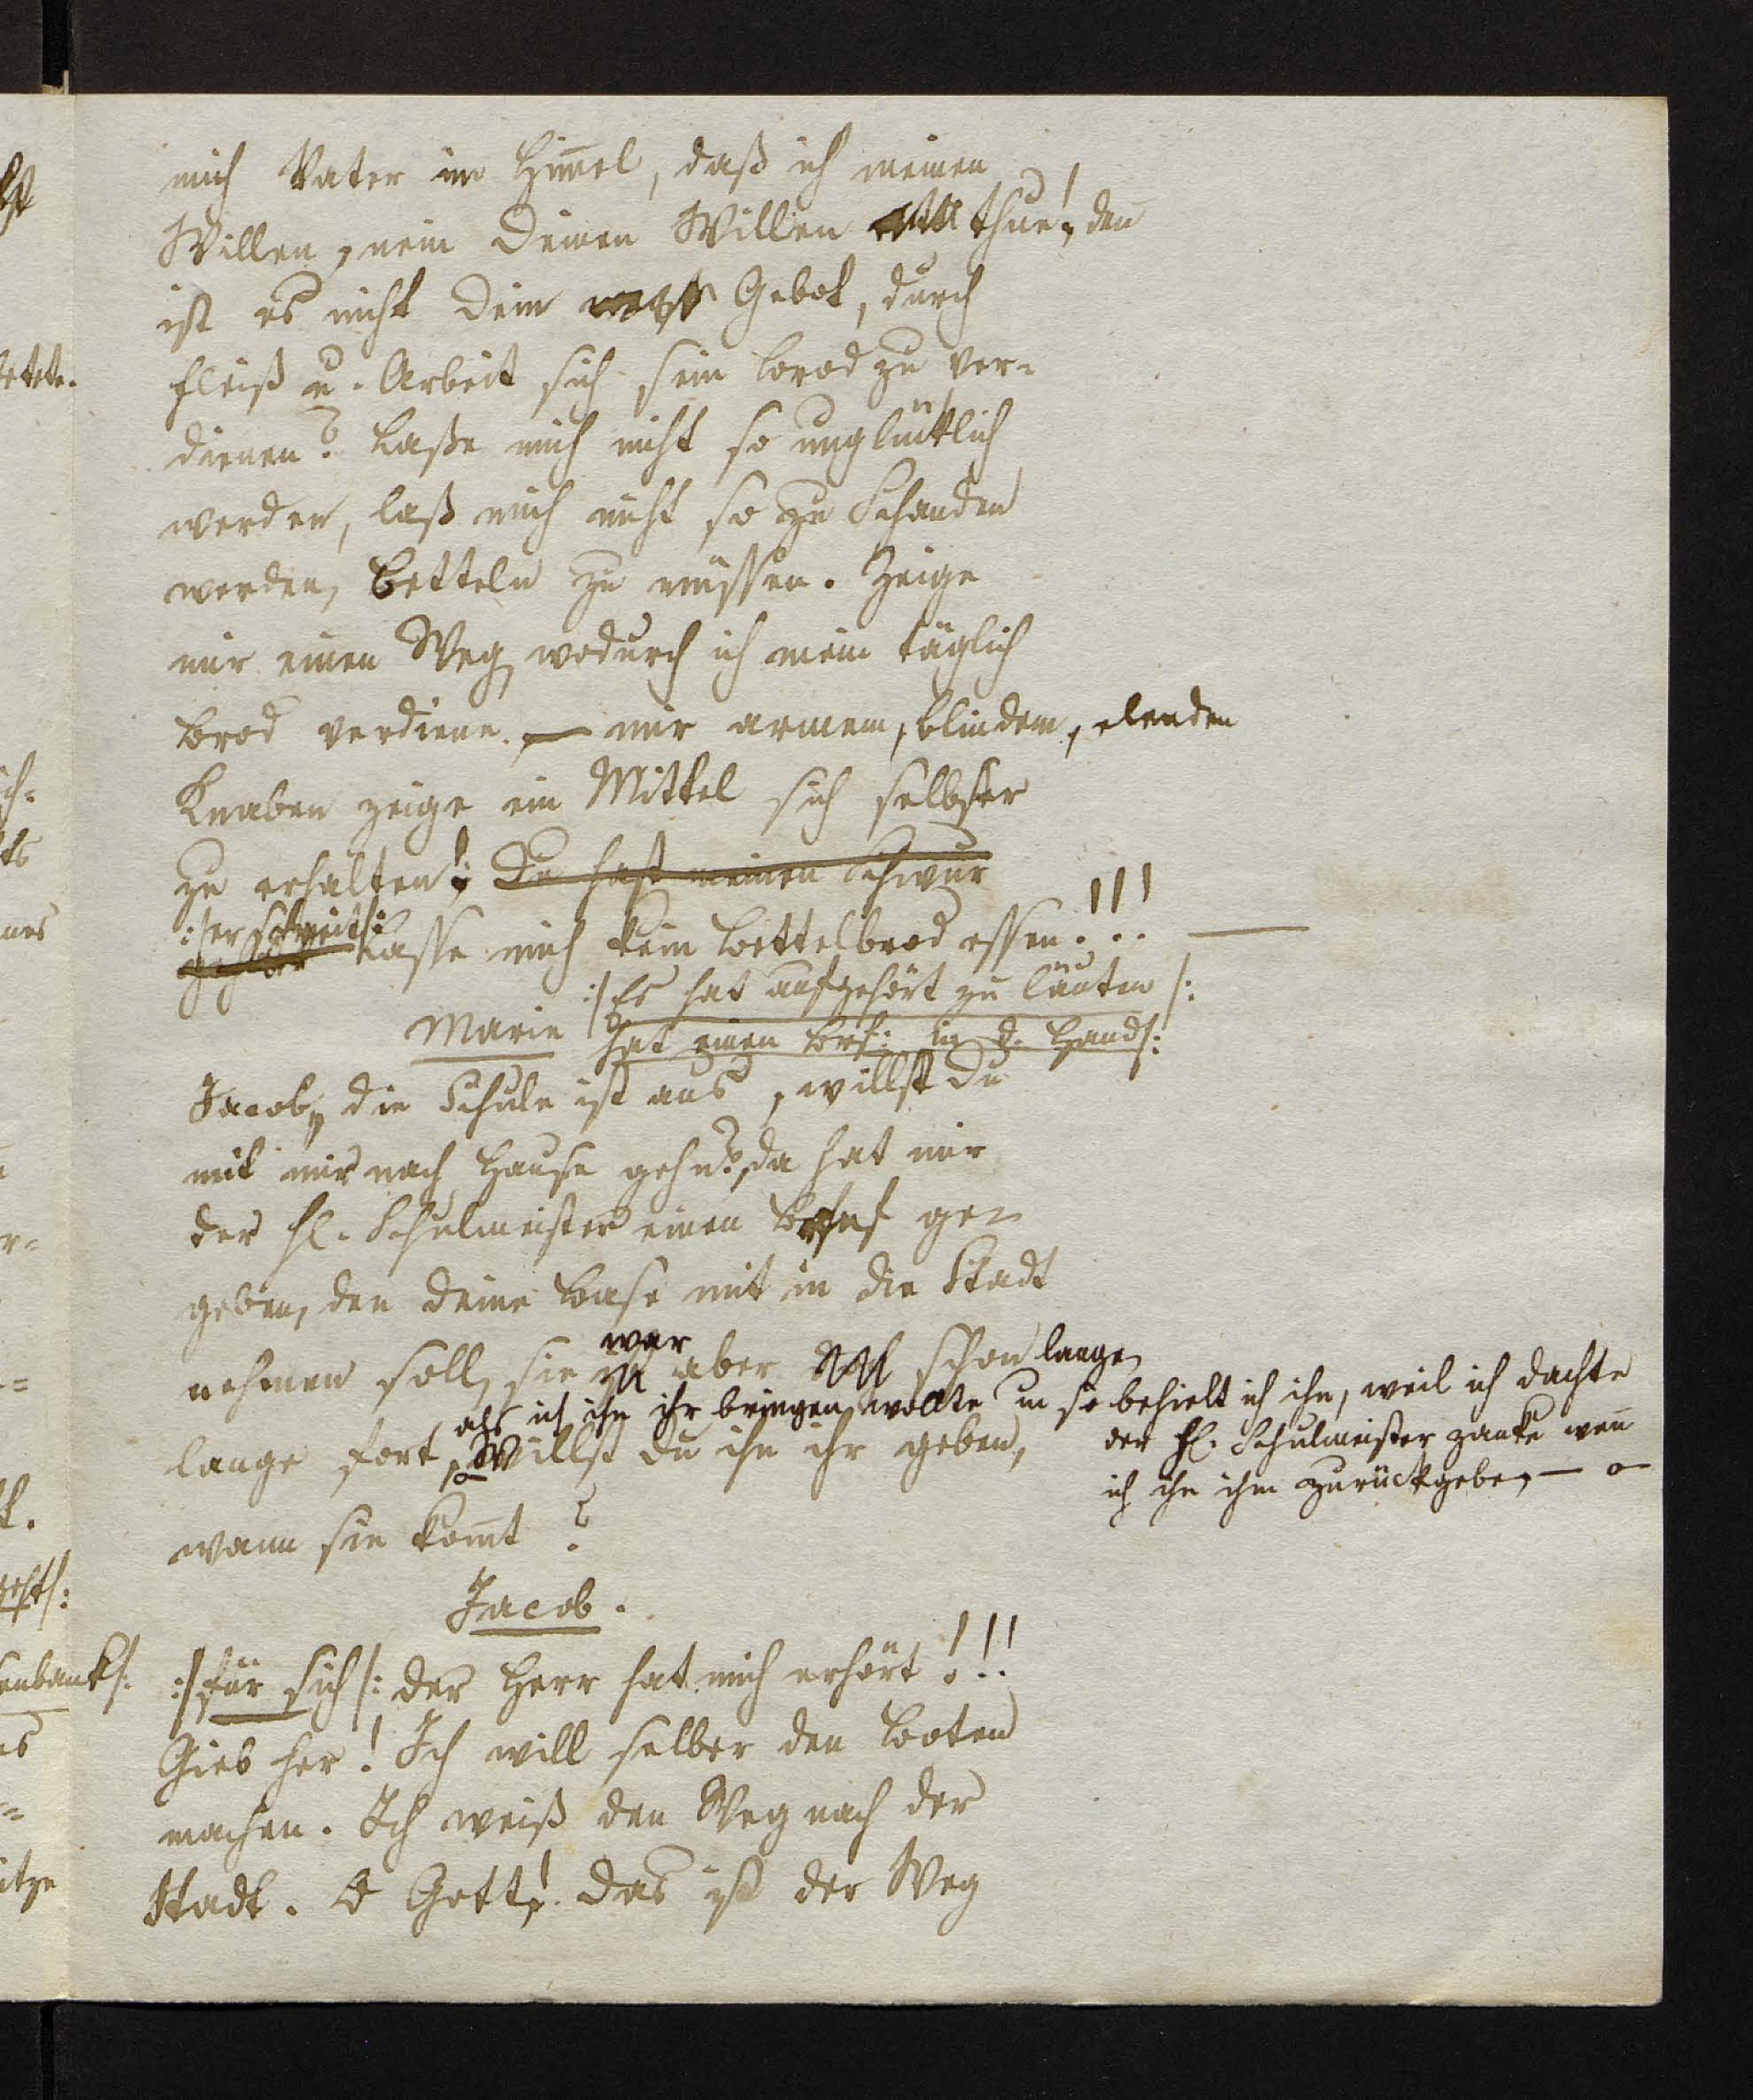 mich Vater im Him̄el, daß ich meinen
Willen, nein Deinen Willen thue!, den̄
ist es nicht Dein Gebot, durch
Fleiß u. Arbeit sich sein Brod zu ver-
dienen? Laße mich nicht so unglücklich
werden, laß mich nicht so zu Schanden
werden, betteln zu müssen. Zeige
mir einen Weg wodurch ich mein täglich
Brod verdiene. — mir armem, blindem, elenden
Knaben zeige ein Mittel sich selbster
zu erhalten! Du hast meinen Schwur
:/er schreit/:
gehört Lasse mich kein Bettelbrod essen!!! —
:/Es hat aufgehört zu läuten/:
Marie hat einen Brf: in d. Hand/:
Jacob, die Schule ist aus, willst Du
mit mir nach Hause gehn?, da hat mir
der H. Schulmeister einen Brief ge-
geben, den Deine Base mit in die Stadt
nehmen soll, sie war aber schon lange
als ich ihn ihr bringen wollte u so behielt ich ihn, weil ich dachte
der H. Schulmeister zanke wen̄
ich ihn ihm zurückgebe, —
lange fort, Willst Du ihn ihr geben,
wann sie kom̄t?
Jacob.
:/für sich/: der Herr hat mich erhört!!!
Gieb her! Ich will selber den Boten
machen. Ich weiß den Weg nach der
Stadt. O Gott! das ist der Weg